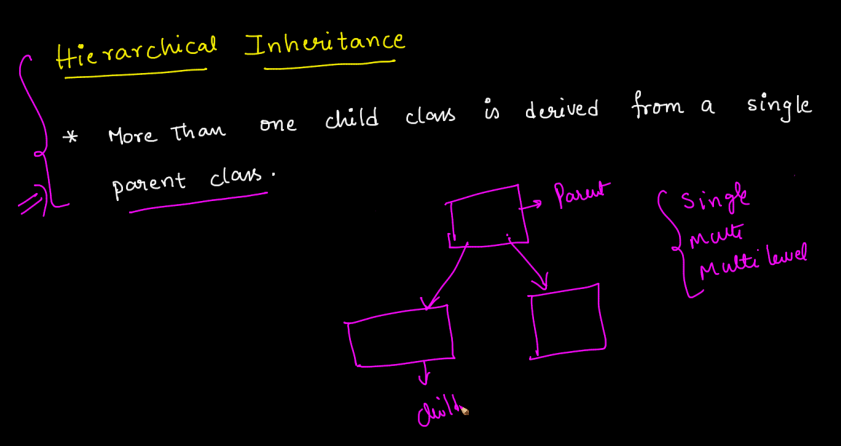 Hierarchical Inheritance
* More Than one child class is derived from a single
parent class.
Parent
Single
Multi
Multi level
child